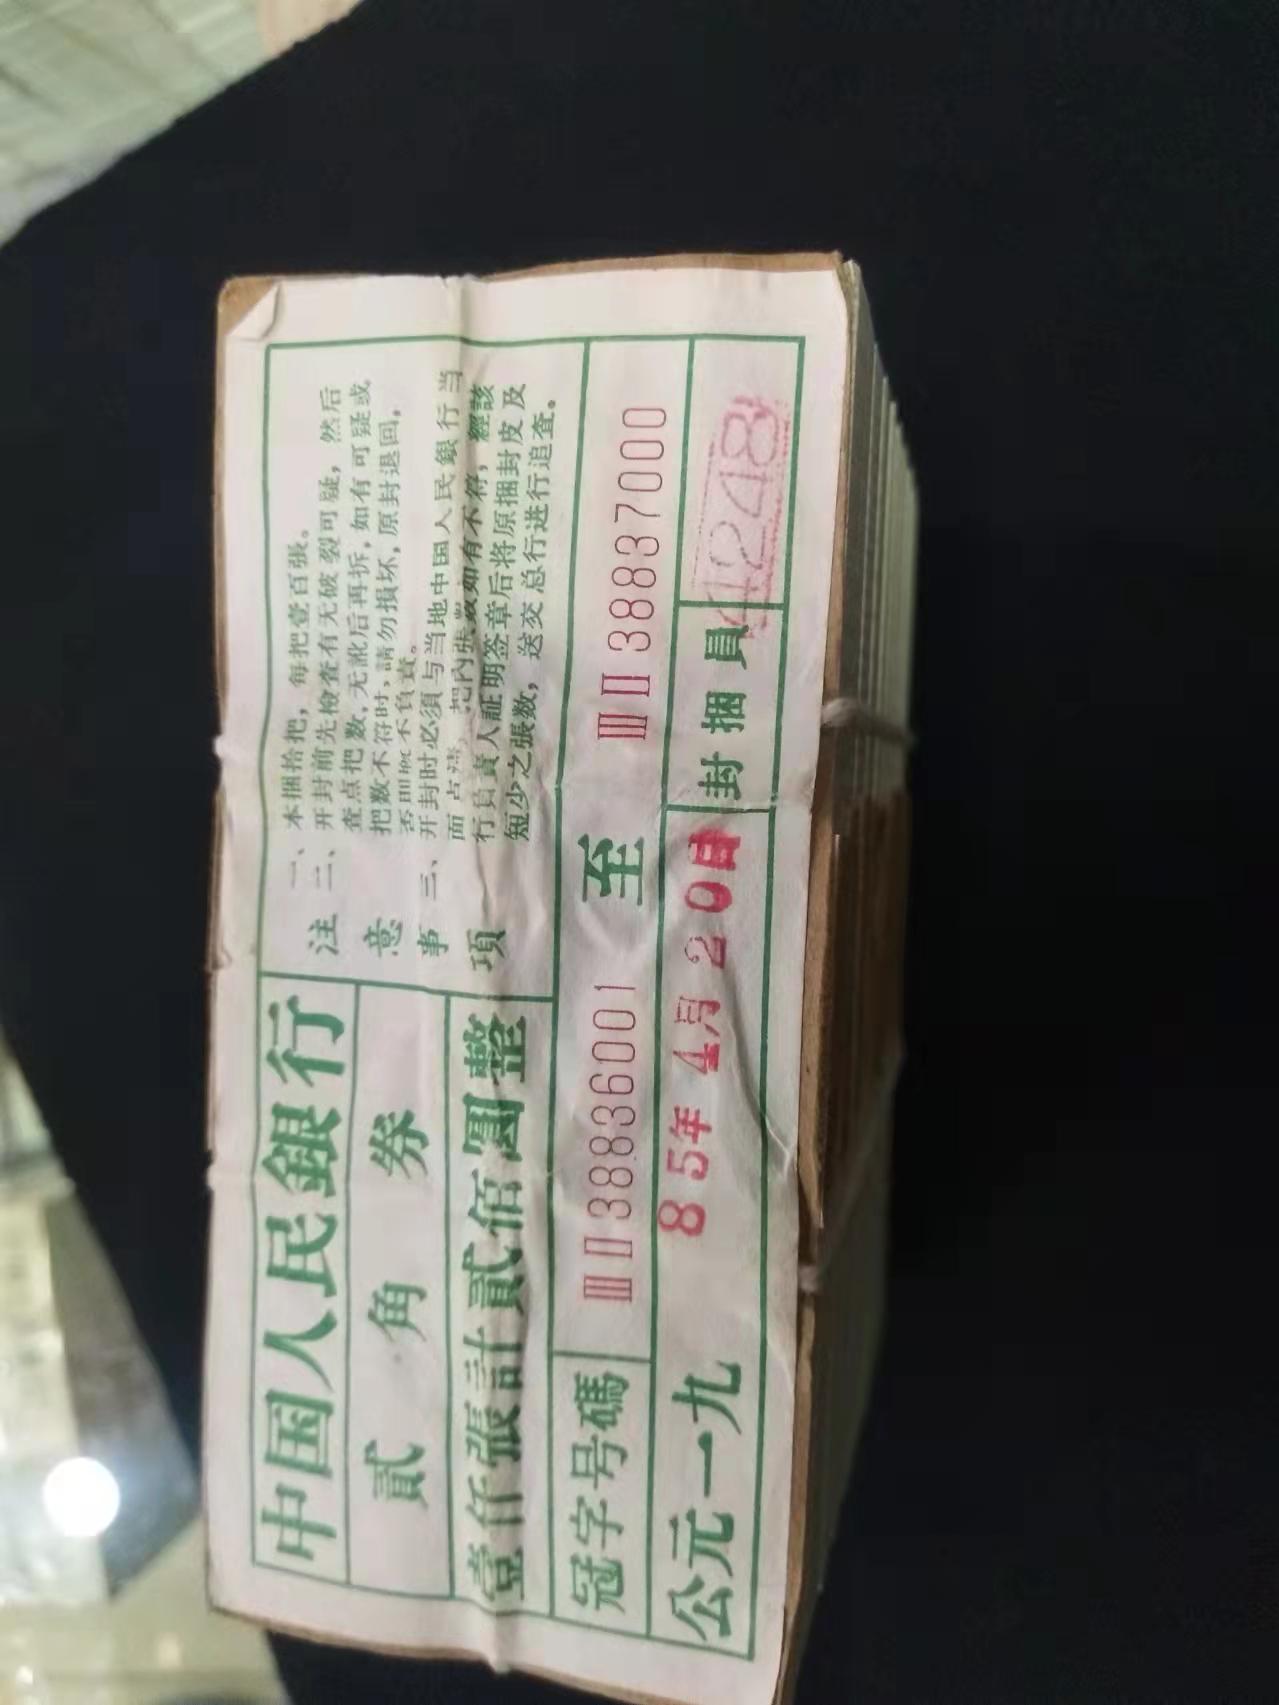 中国人民銀行
貳角券
壹仟張計貳佰圓整
注意事項
一、本捆拾把，每把壹百張。
二、开封前先檢查有无破裂可疑，然后
查点把数，无訛后再拆，如有可疑或
把数不符时，請勿損坏，原封退回，
否則概不負責。
三、开封时必須与当地中国人民銀行当
面点清，把內張数如有不符，經該
行負責人証明签章后将原捆封皮及
短少之張数，送交总行进行追査。
冠字号碼 ⅢⅡ38836001 至 ⅢⅡ38837000
公元一九85年4月20日 封捆員 1248